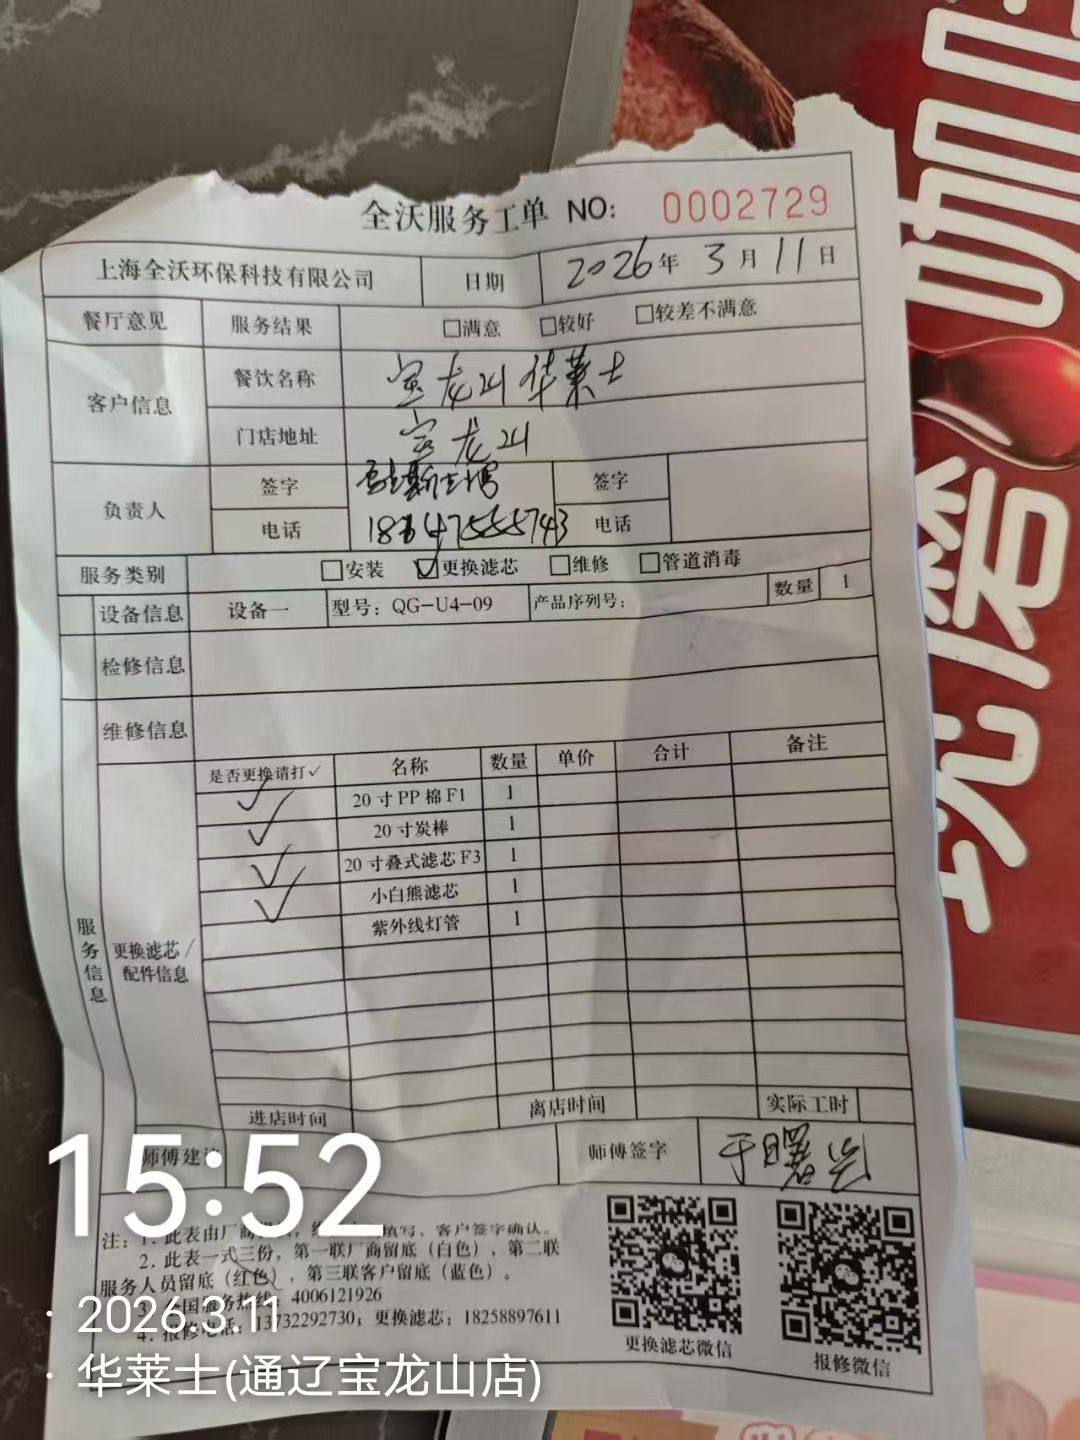 全沃服务工单 NO: 0002729
上海全沃环保科技有限公司 日期 2026年3月11日
餐厅意见 服务结果 □满意 □较好 □较差不满意
客户信息 餐饮名称 宝龙山华莱士
门店地址 宝龙山
负责人 签字 签字
电话 电话
服务类别 □安装 ☑更换滤芯 □维修 □管道消毒
设备信息 设备一 型号：QG-U4-09 产品序列号： 数量 1
检修信息
维修信息
是否更换请打✓ 名称 数量 单价 合计 备注
✓ 20寸PP棉F1 1
✓ 20寸炭棒 1
✓ 20寸叠式滤芯F3 1
✓ 小白熊滤芯 1
紫外线灯管 1
服务信息
更换滤芯/
配件信息
进店时间 离店时间 实际工时
师傅建 师傅签字
注：1. 此表由厂商 填写，客户签字确认。
2. 此表一式三份，第一联厂商留底（白色），第二联
服务人员留底（红色），第三联客户留底（蓝色）。
国服务热线 4006121926
4. 报修电话：13732292730；更换滤芯：18258897611
更换滤芯微信
报修微信
15:52
2026.3.11
华莱士(通辽宝龙山店)
咖